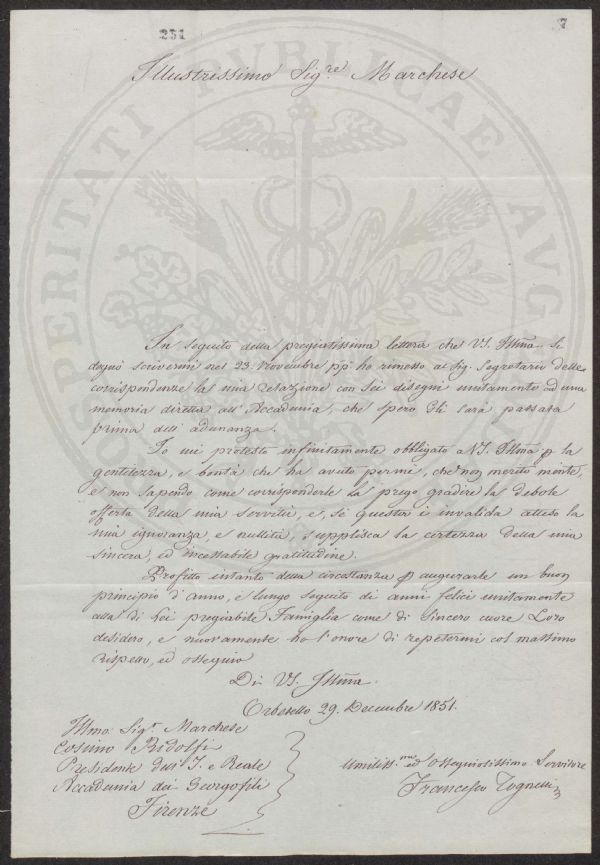 231
7
Illustrissimo Sig.re Marchese
In seguito della pregiatissima lettera che VS. Illma. si
degnò scrivermi nel 23. Novembre pp. ho rimesso al Sig. Segretario delle
corrispondenze la mia relazione con sei disegni unitamente ad una
memoria diretta all'Accademia, che spero gli sarà passata
prima dell'adunanza.
Io mi protesto infinitamente obbligato a VS. Illma. p la
gentilezza, e bontà che ha avuto per me, che non merito niente,
e non sapendo come corrisponderle la prego gradire la debole
offerta della mia servitù, e, se questa è invalida atteso la
mia ignoranza, e nullità, supplisca la certezza della mia
sincera, ed incessabile gratitudine.
Profitto intanto della circostanza p augurarle un buon
principio d'anno, e lungo seguito di anni felici unitamente
alla di Lei pregiabile Famiglia come di sincero cuore Loro
desidero, e nuovamente ho l'onore di repetermi col massimo
rispetto, ed ossequio
Di VS. Illma.
Orbetello 29. Decembre 1851.
Illmo. Sig.r Marchese
Cosimo Ridolfi
Presidente dell'I. e Reale
Accademia dei Georgofili
Firenze
Umiliss.mo ed Ossequiosissimo Servitore
Francesco Tognetti
PROSPERITATI PVBLICAE AVG